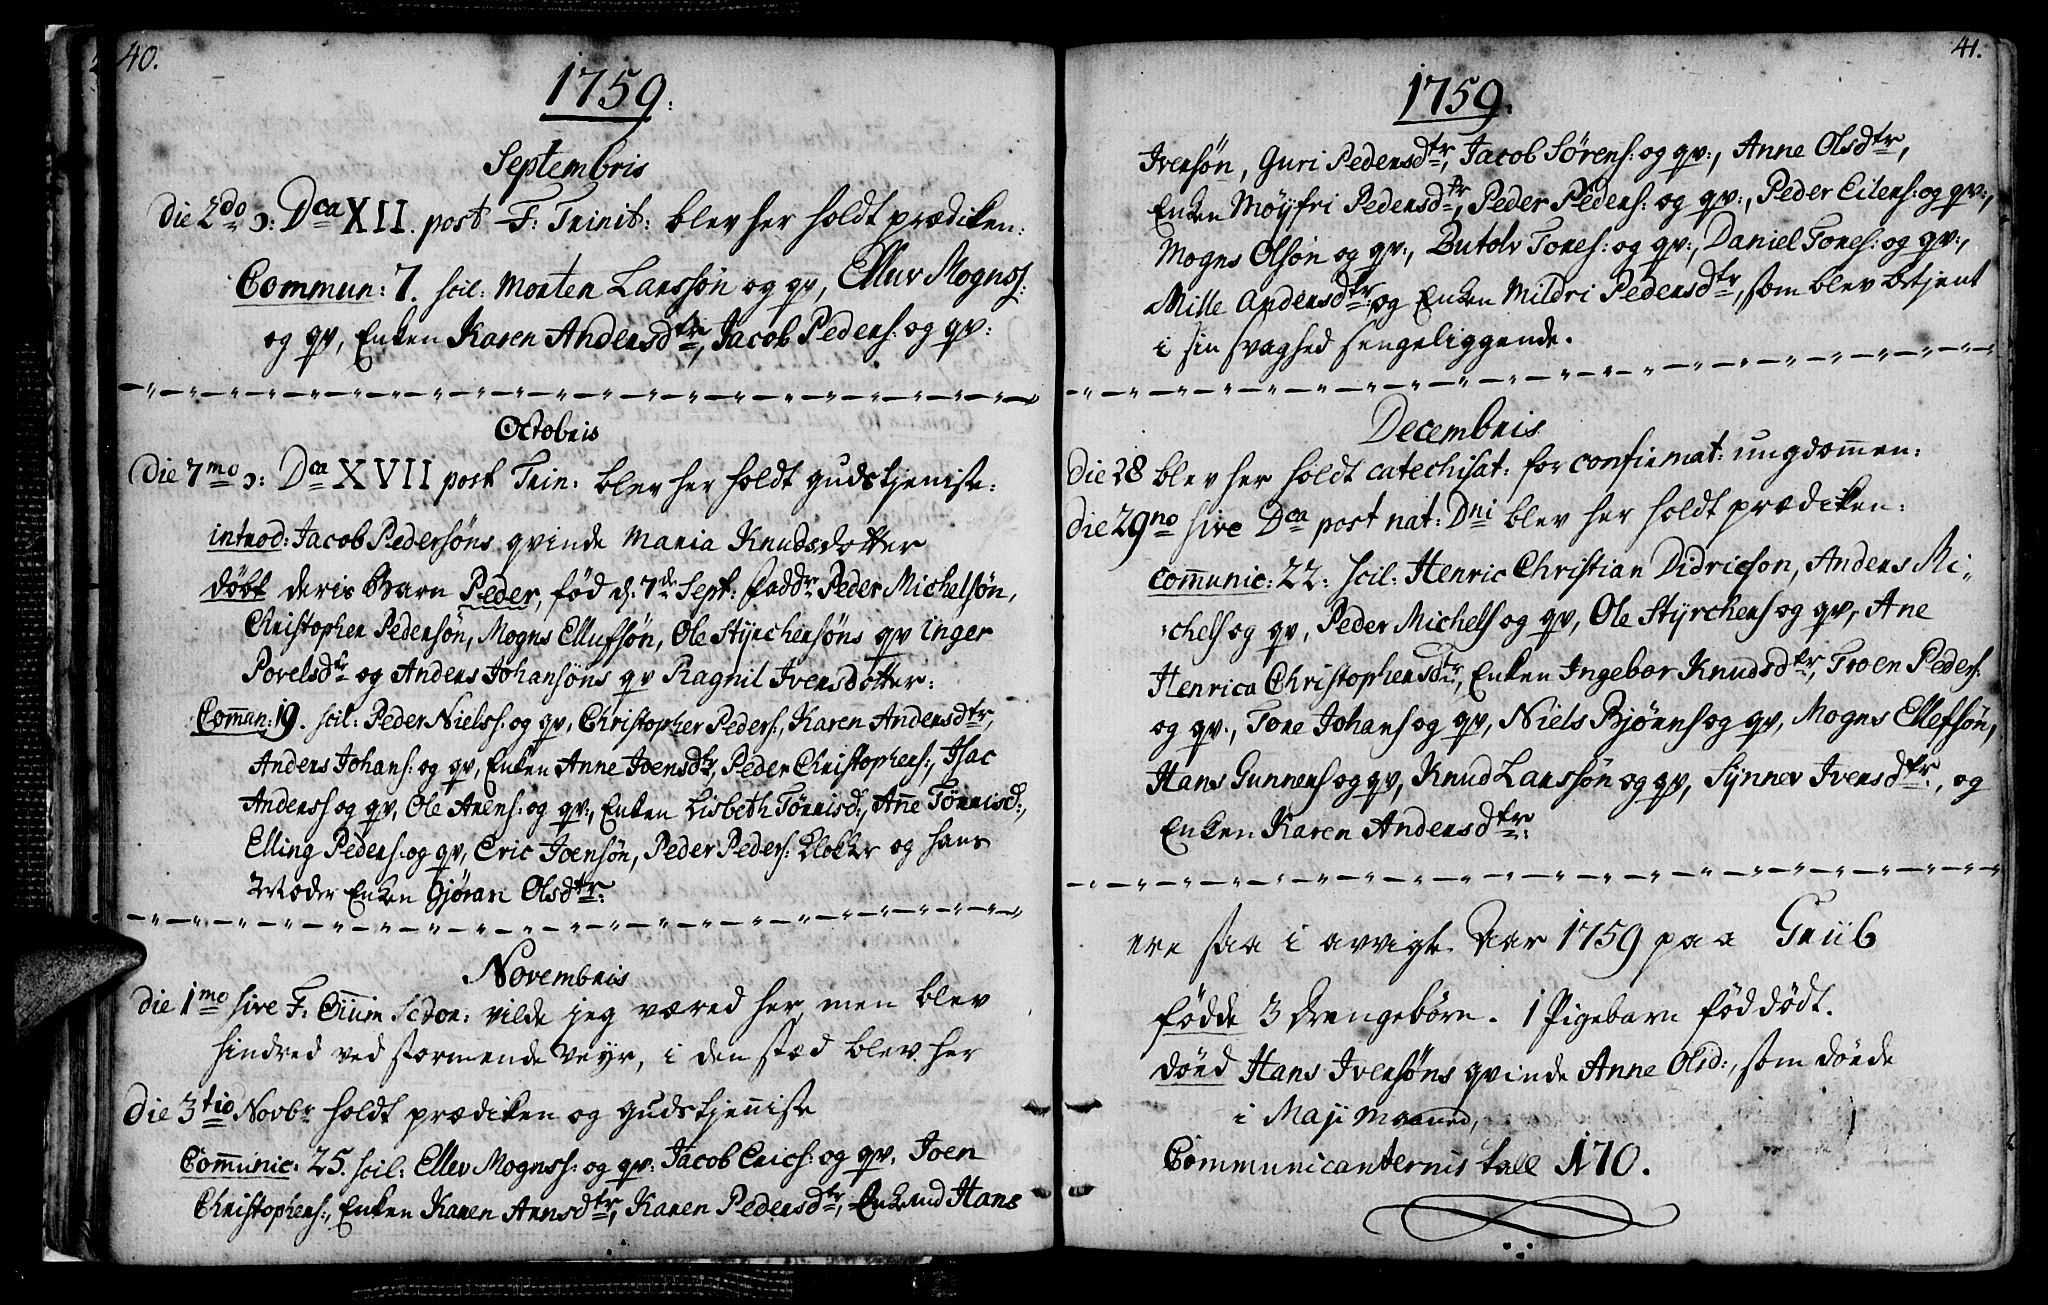 40.
1759.
Septembris
Die 2do ɔ: Dca XII. post F: Trinit: blev her holdt prædiken:
Commun: 7. scil: Morten Larssøn og qv, Ellev Mognss:
og qv, Enken Karen Andersdtr, Jacob Peders: og qv:
Octobris
Die 7mo ɔ: Dca XVII post Trin: blev her holdt gudstjeniste:
introd: Jacob Pedersøns qvinde Maria Knudsdotter
døbt deris Barn Peder, fød d: 7de Sept: Faddr Peder Michelsøn,
Christopher Pedersøn, Mogns Ellufsøn, Ole Styrchersøns qv inger
Povelsdtr og Anders Johansøns qv Ragnil Iversdotter:
Comun: 19. scil: Peder Nielss: og qv, Christopher Peders:, Karen Andersdtr,
Anders Johans: og qv, Enken Anne Joensdtr, Peder Christophers:, Isac
Anderss og qv, Ole Arens: og qv:, Enken Lisbeth Tønnisd:, Anne Tønnisd:,
Elling Peders: og qv, Eric Joensøn, Peder Peders: klokker og hans
Moder Enken Gjøran Olsdtr:
Novembris
Die 1mo sive F: Oium Sctor: vilde jeg væred her, men blev
hindred ved stormende Veyr, i den stæd blev her
Die 3tio Novbr holdt prædiken og gudstjeniste
Communic: 25. scil: Ellev Mognss: og qv: Jacob Erics: og qv. Joen
Christophers:, Enken Karen Arnsdtr, Karen Pedersdtr, Hans
41.
1759.
Iversøn, Guri Pedersdtr, Jacob Sørens: og qv:, Anne Olsdtr,
Enken Møyfri Pedersdtr, Peder Peders: og qv:, Peder Eilers: og qv:,
Mogns Olsøn og qv:, Butolv Tores: og qv:, Daniel Tores: og qv:,
Mille Andersdtr og Enken Mildri Pedersdtr, som blev betjent
i sin svaghed sengeliggende.
Decembris
Die 28 blev her holdt catechisat: for confirmat: ungdomen:
die 29no sive Dca post nat: Dni blev her holdt prædiken:
Communic: 22: scil: Henric Christian Didricson, Anders Mi-
chels og qv, Peder Michels og qv, Ole Styrchers og qv, Ane
Henrica Christophersdtr, Enken Ingebor Knudsdtr, Troen Peders:
og qv:, Tore Johans og qv, Niels Bjørns og qv, Mogns Ellefsøn,
Hans Gunners og qv, Knud Larssøn og qv, Synnev Iversdtr:, og
Enken Karen Andersdtr:
ere saa i avvigte Aar 1759 paa Griib
fødde 3 Drengebørn. 1 Pigebarn fød dødt.
døed Hans Iversøns qvinde Anne Olsd:, som døede
i Maji Maaned,
Communicanternis tall 170.